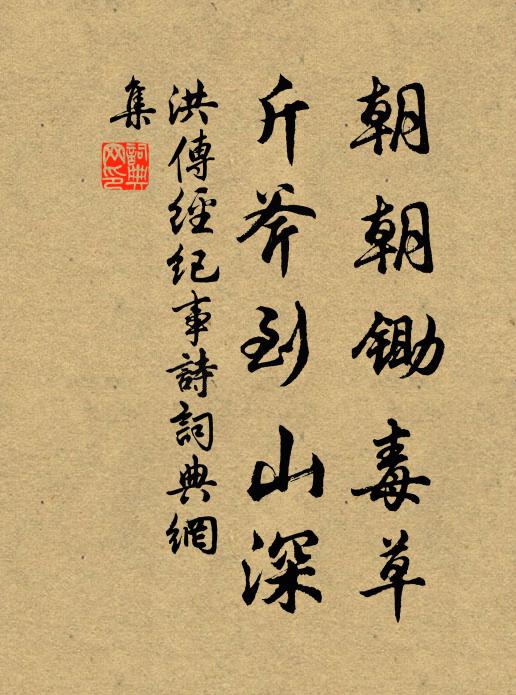 朝朝锄毒草
斤斧到山深
洪傳經紀事詩詞典網
集
詞典網印